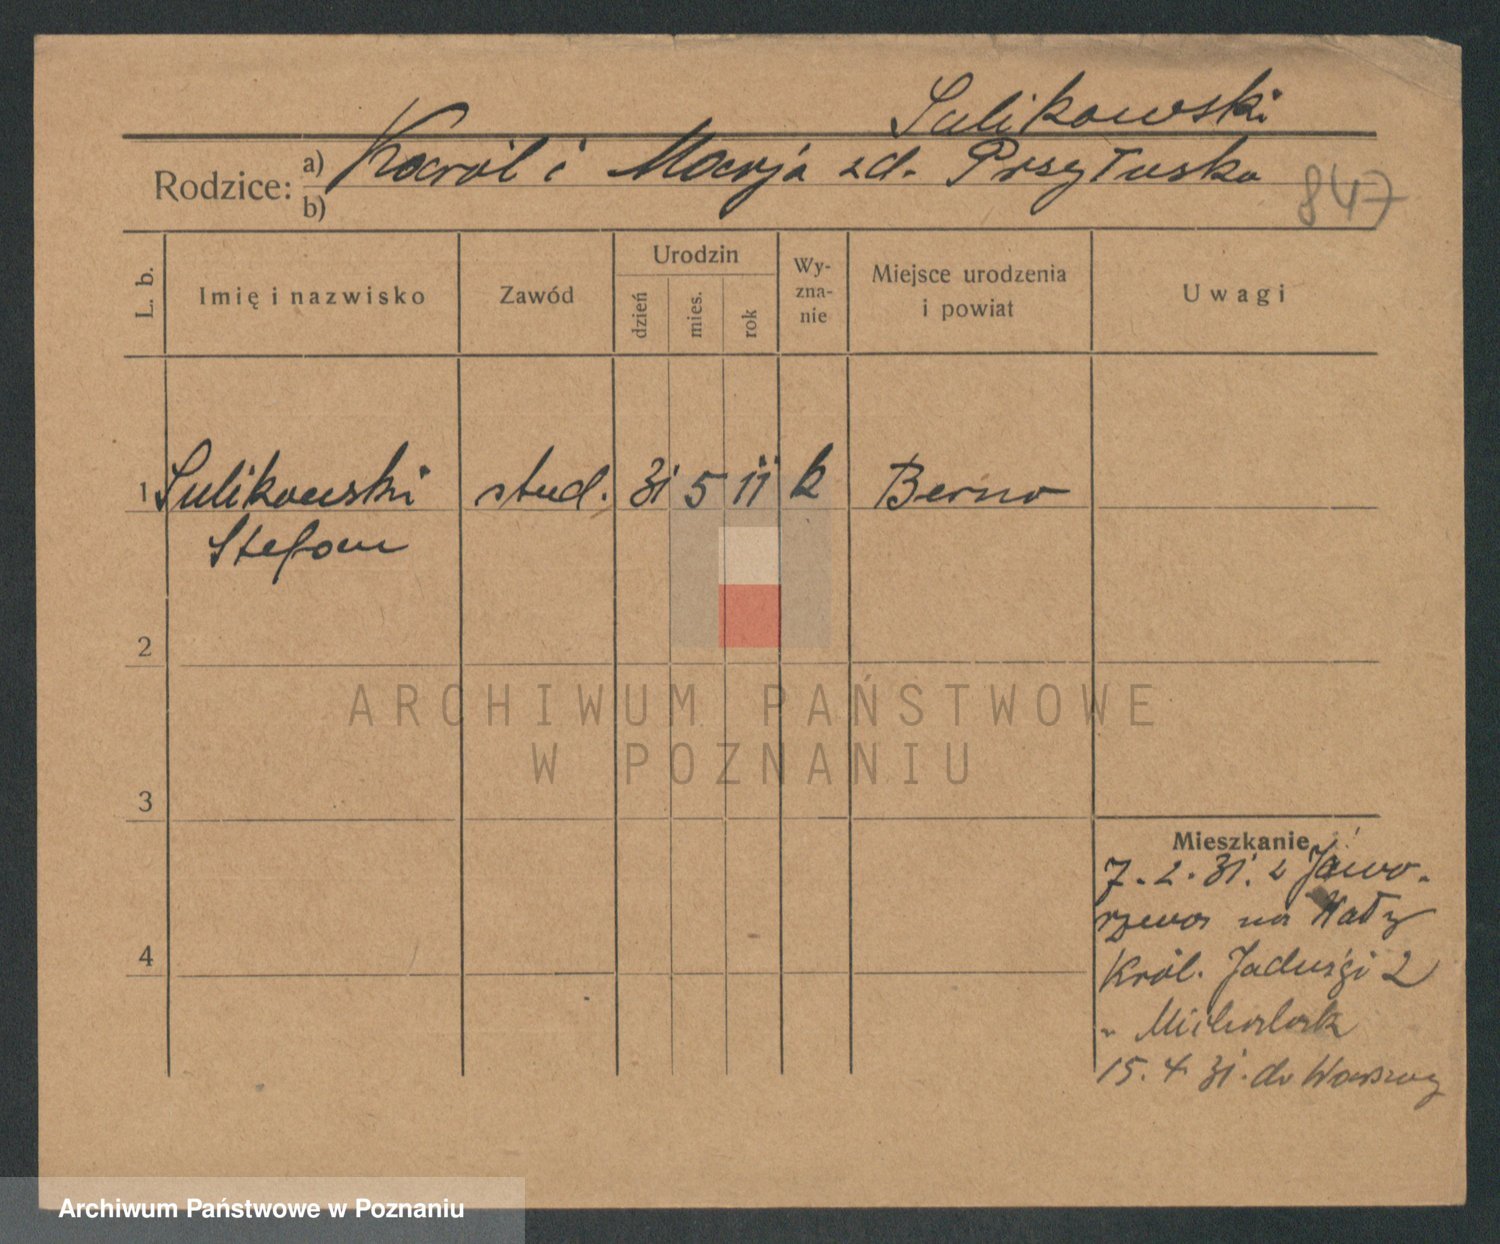 Sulikowski
Rodzice: a) Karól i Marja zd. Przyłuska
b)
847
L. b.
Imię i nazwisko
Zawód
Urodzin
dzień
mies.
rok
Wy-
zna-
nie
Miejsce urodzenia
i powiat
Uwagi
1 Sulikowski stud. 31 5 11 k Berno
Stefan
2
3
4
Mieszkanie
7.2.31. z Jawo-
rzewa na Wały
Król. Jadwigi 2
15.4.31. do Warszawy
ARCHIWUM PAŃSTWOWE
W POZNANIU
Archiwum Państwowe w Poznaniu